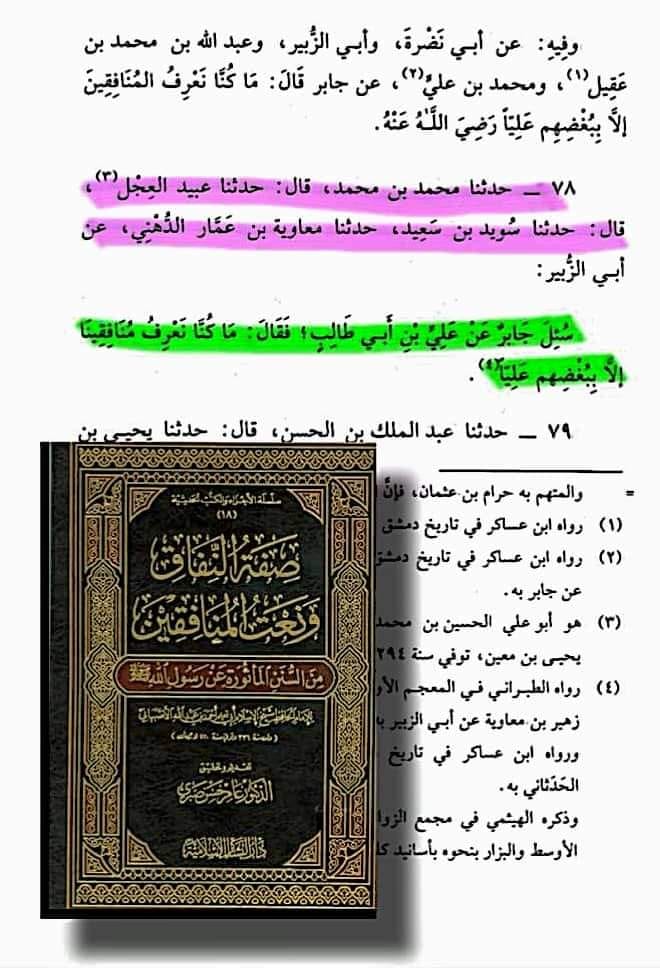 وفِيهِ: عن أبي نَضْرةَ، وأبي الزُّبير، وعبد الله بن محمد بن
عَقِيل(١)، ومحمد بن عليٍّ(٢)، عن جابر قَالَ: مَا كُنَّا نَعْرِفُ المُنَافِقِينَ
إلَّا بِبُغْضِهِم عَلِيّاً رَضِيَ اللَّهُ عَنْهُ.
٧٨ ـ حدثنا محمد بن محمد، قال: حدثنا عبيد العِجْل(٣)،
قال: حدثنا سُويد بن سَعِيد، حدثنا معاوية بن عَمَّار الدُّهْنِي، عن
أبي الزُّبير:
سُئِلَ جَابرٌ عَنْ عَلِيِّ بْنِ أَبي طَالِبٍ؛ فَقَالَ: مَا كُنَّا نَعْرِفُ مُنَافِقِينَا
إلَّا بِبُغْضِهِم عَلِيّاً(٤).
٧٩ ـ حدثنا عبد الملك بن الحسن، قال: حدثنا يحيى بن
= والمتهم به حرام بن عثمان، فإنَّ
(١) رواه ابن عساكر في تاريخ دمشق
(٢) رواه ابن عساكر في تاريخ دمشق
عن جابر به.
(٣) هو أبو علي الحسين بن محمد
يحيى بن معين، توفي سنة ٢٩٤
(٤) رواه الطبراني في المعجم الأو
زهير بن معاوية عن أبي الزبير به
ورواه ابن عساكر في تاريخ
الحَدَثاني به.
وذكره الهيثمي في مجمع الزوا
الأوسط والبزار بنحوه بأسانيد كل
سلسلة الأجزاء والكتب الحديثية
(١٨)
صِفَةُ النِّفَاق
وَنَعْتُ المُنَافِقِينَ
مِنَ السُّنَنِ المَأثُورَةِ عَنْ رَسُولِ اللَّهِ ﷺ
تقديم وتحقيق
الدكتور عامر حسن صبري
دار البشائر الإسلامية